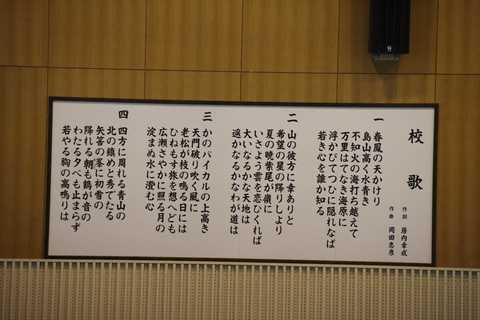 校歌
作詞 房内幸成
作曲 岡田忠彦
一
春風の天かけり
島山高く水青き
不知火の海打ち越えて
万里はてなき海原に
浮かびてつひに隠れなば
若き心を誰か知る
二
山の彼方に幸ありと
希望の星の降りしより
夏の暁紫尾が嶺に
いさよう雲を恋ひくれば
大いなるかな天地は
遥かなるかなわが道は
三
かのバイカルの上高き
天門破り吹く風に
老松が枝の鳴る日には
ひねもす旅を想へども
広瀬さやかに照る月の
淀まぬ水に澄む心
四
四方に周れる青山の
北の鎮めと秀でたる
矢筈の峯に初雪の
降れる朝も鶴が音の
わたる夕べも止まらず
若やる胸の高鳴りは